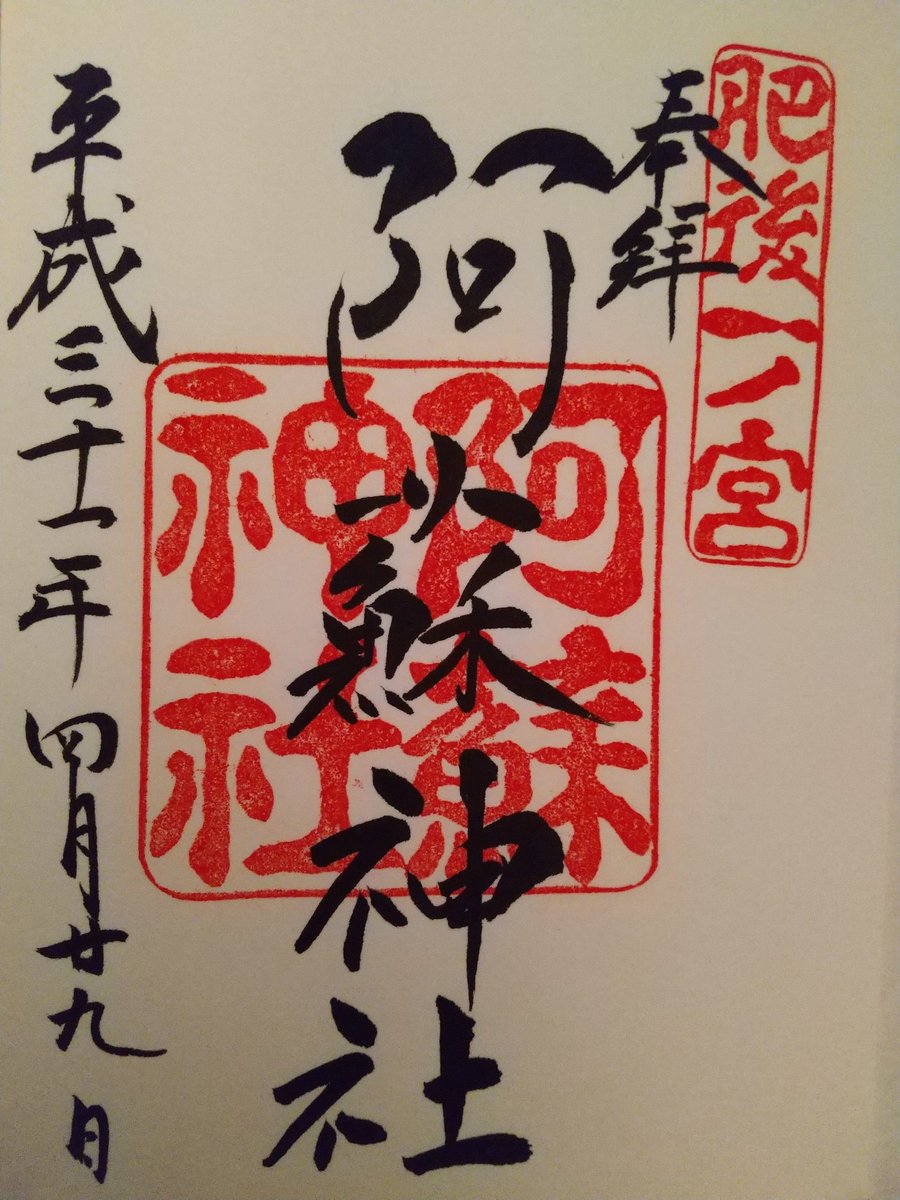 肥後一ノ宮
奉拝
阿蘇神社
阿蘇
神社
平成三十一年四月廿九日